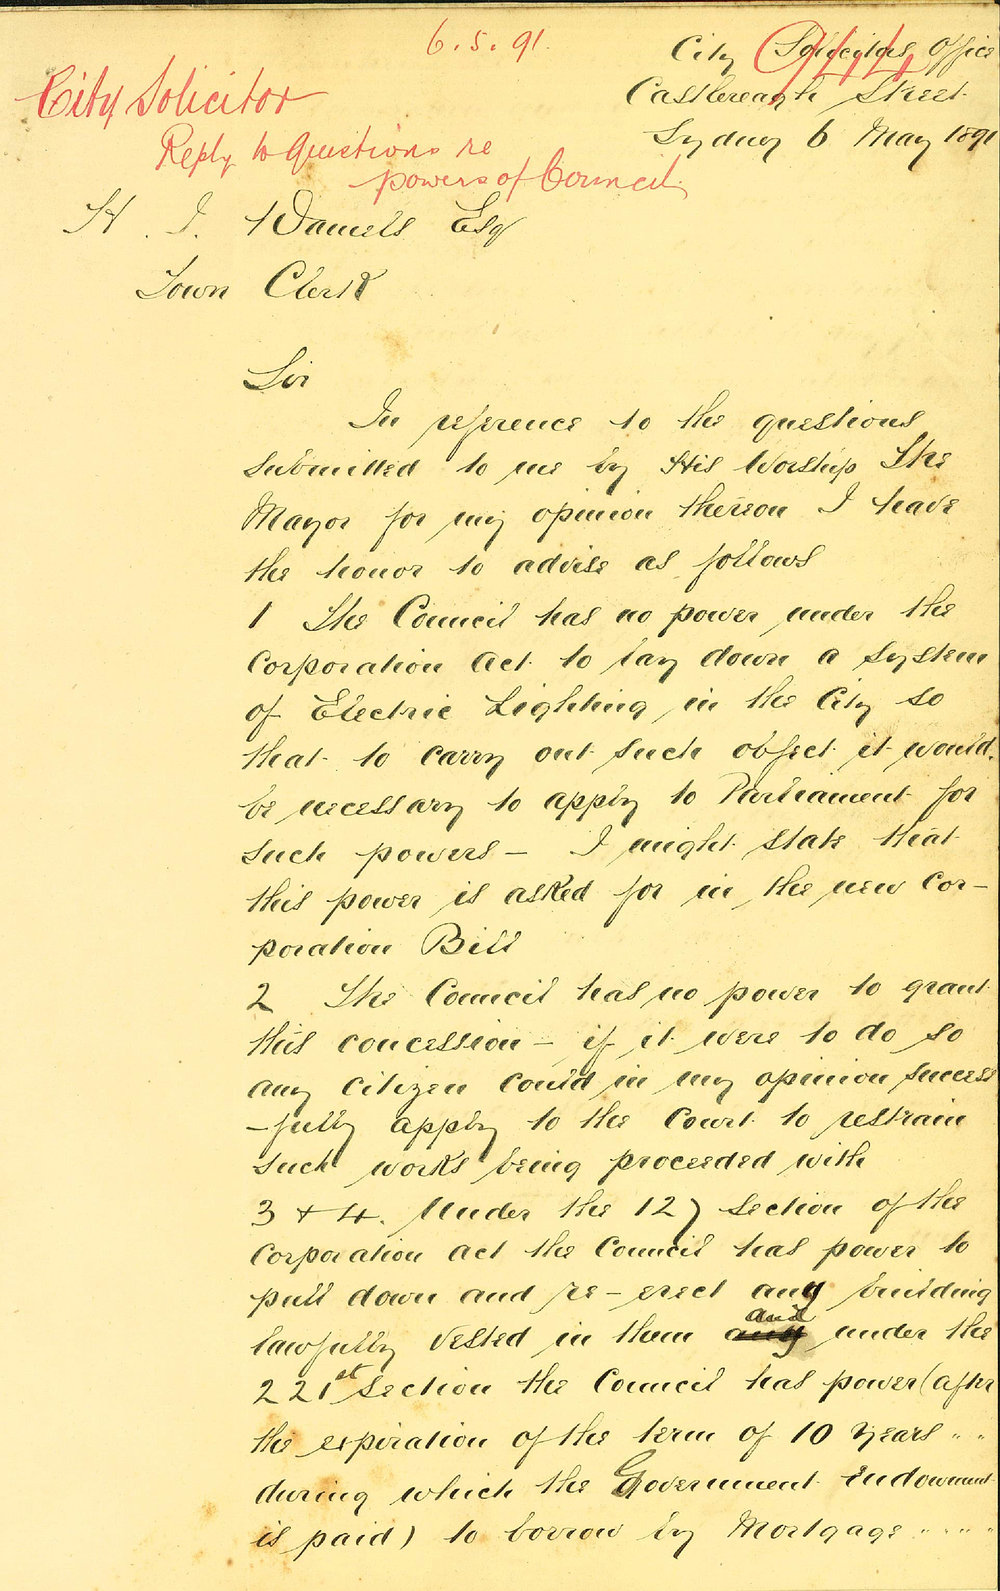 6.5.91.
City Solicitors Office
Castlereagh Street
Sydney 6 May 1891
City Solicitor
Reply to Questions re
powers of Council
H. J. Daniels Esq
Town Clerk
Sir
In reference to the questions
submitted to me by His Worship The
Mayor for my opinion thereon I have
the honor to advise as follows
1 The Council has no power under the
Corporation Act to lay down a system
of Electric Lighting in the City so
that to carry out such object it would
be necessary to apply to Parliament for
such powers — I might state that
this power is asked for in the new Cor-
poration Bill
2 The Council has no power to grant
this concession — if it were to do so
any citizen could in my opinion success
-fully apply to the Court to restrain
such works being proceeded with
3 + 4. Under the 127 section of the
Corporation Act the Council has power to
pull down and re-erect any building
lawfully vested in them and under the
221st Section the Council has power (after
the expiration of the term of 10 years
during which the Government Endowment
is paid) to borrow by Mortgage